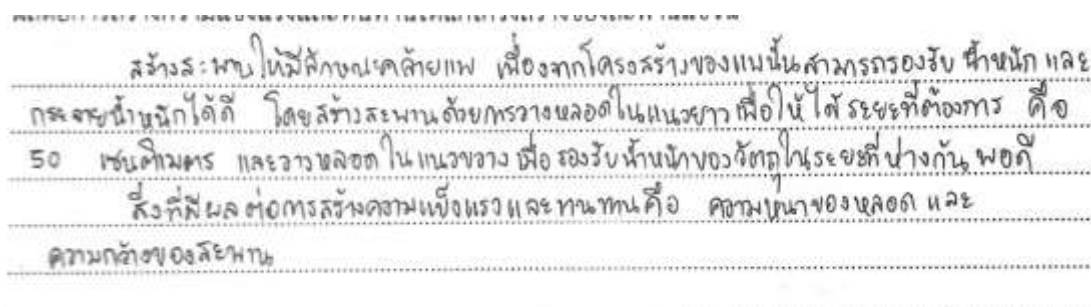 สร้างสะพานให้มีลักษณะคล้ายแพ เนื่องจากโครงสร้างของแพนั้นสามารถรองรับ น้ำหนัก และ
กระจายน้ำหนักได้ดี โดยสร้างสะพานด้วยการวางหลอดในแนวยาว เพื่อให้ได้ ระยะที่ต้องการ คือ
50 เซนติเมตร และวางหลอด ในแนวขวาง เพื่อ รองรับน้ำหนักของวัตถุในระยะที่ห่างกัน พอดี
สิ่งที่มีผลต่อการสร้างความแข็งแรงและทนทานคือ ความหนาของหลอด และ
ความกว้างของสะพาน